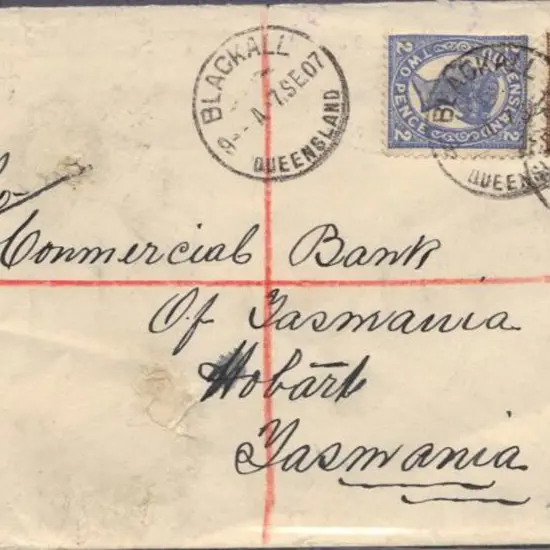 BLACKALL
A
7.SE.07
QUEENSLAND
QUEENSLAND
TWO PENCE
2 2
BLACKALL
QUEENSL
Commercial Bank
Of Tasmania
Hobart
Tasmania